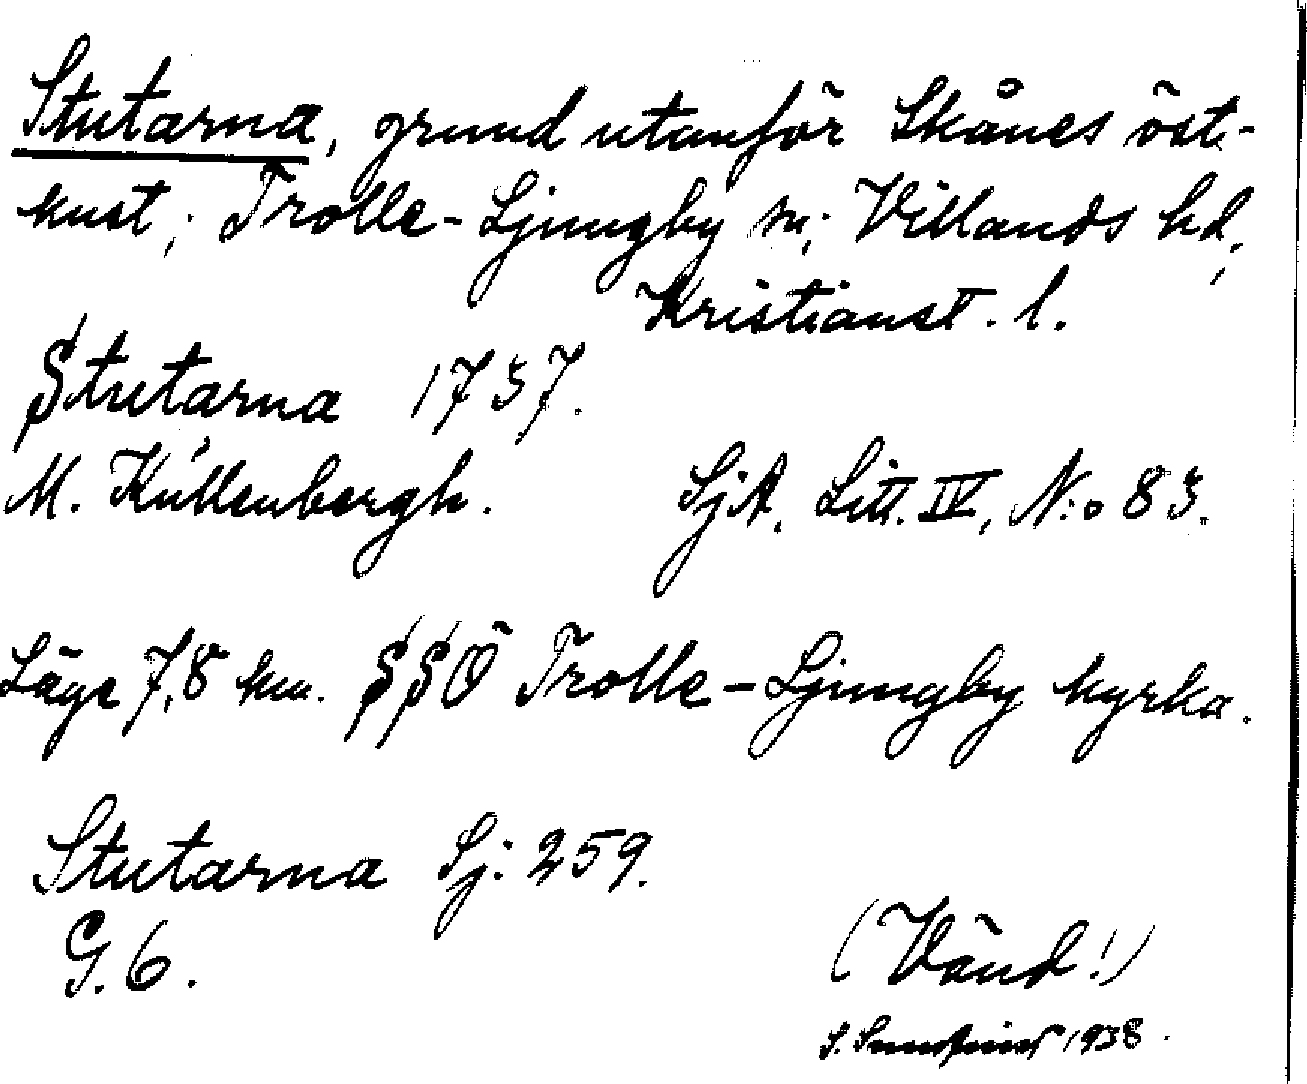 Stutarna, grund utanför Skånes öst-
kust; Trolle-Ljungby sn; Villands hd;
Kristianst. l.
Stutarna 1737.
M. Küllenbergh. SjA. Litt. IV, N:o 83.
Läge 7,8 km. SSÖ Trolle-Ljungby kyrka.
Stutarna Sj: 259.
G. 6.
(Vänd!)
S. 1938.